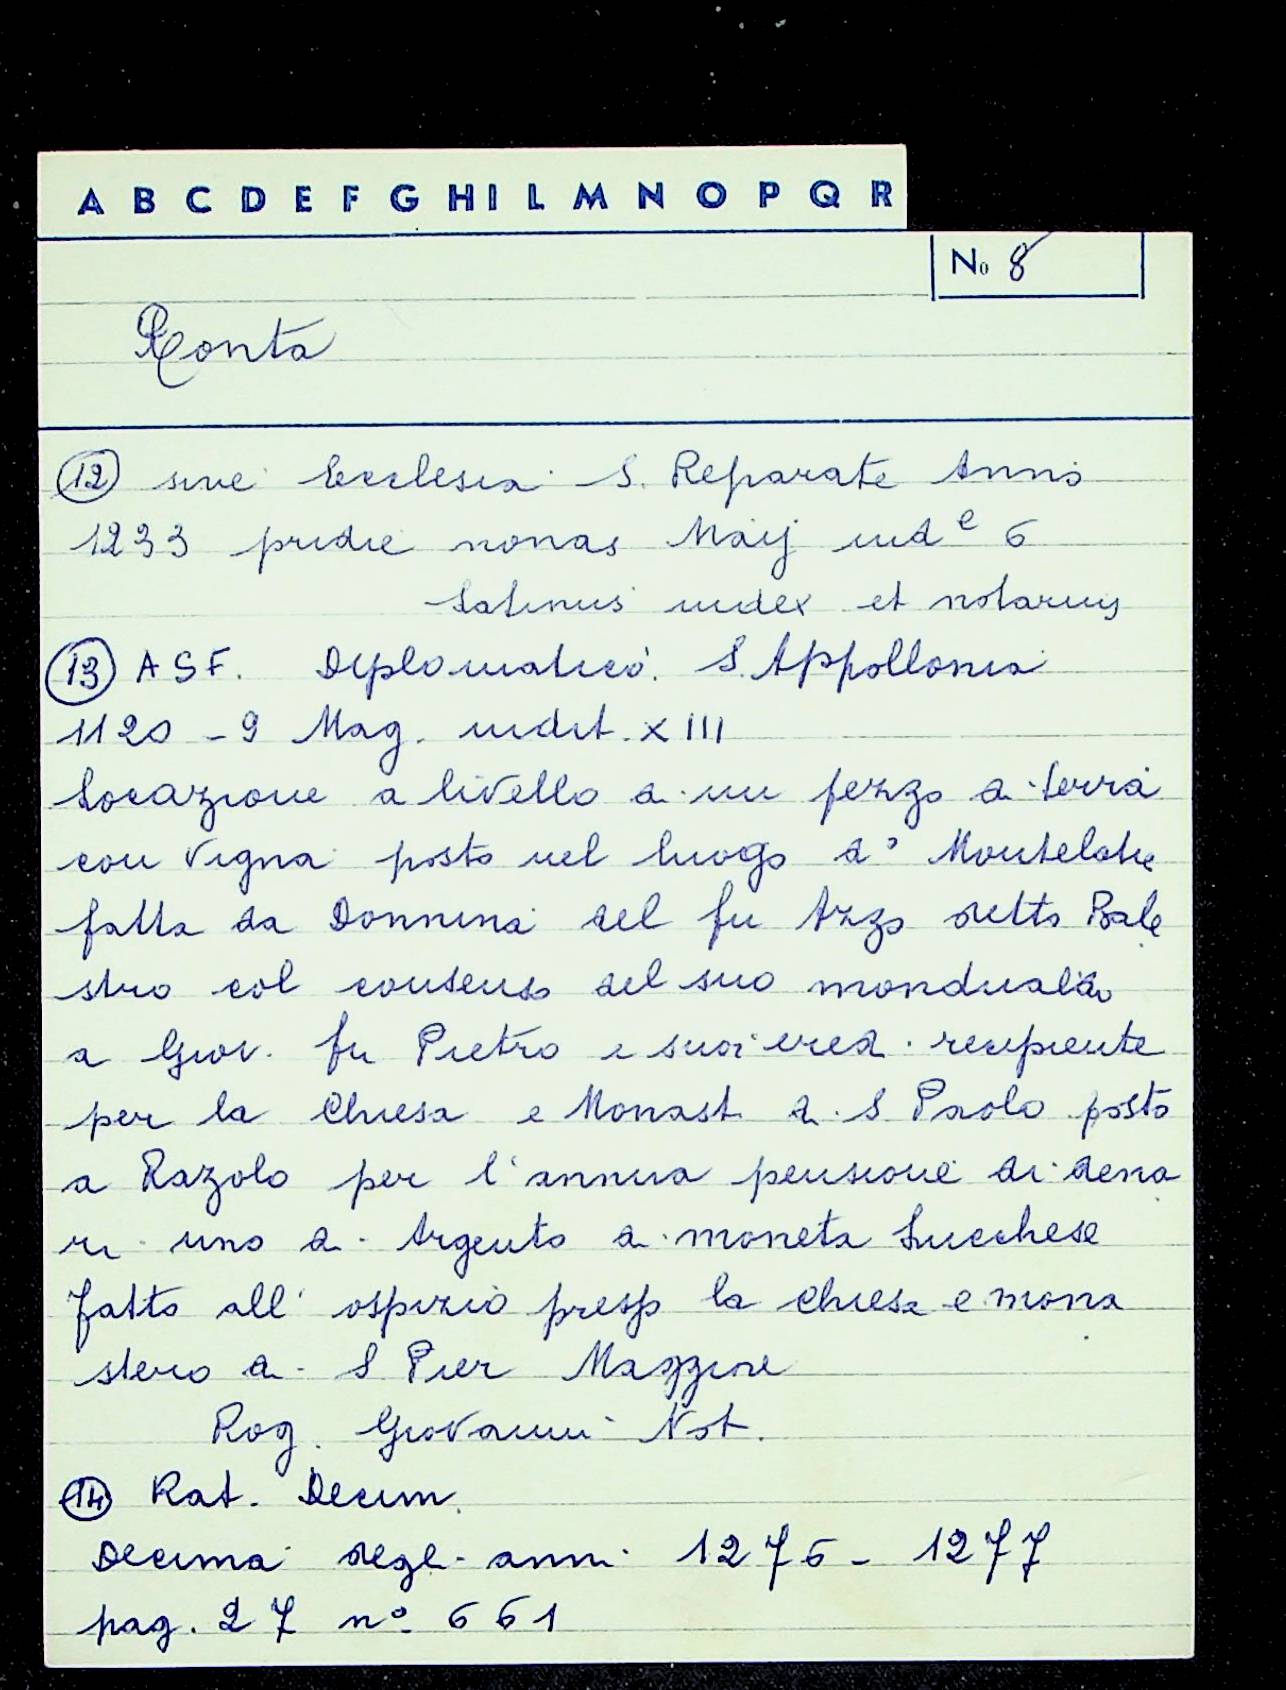 A B C D E F G H I L M N O P Q R
No 8
Ronta
12 sive Ecclesia S. Reparate Anno
1233 pridie nonas Maij indᵉ 6
Latinus iudex et notarius
13 A S F. Diplomatico. S. Appollonia
1120 - 9 Mag. indit. XIII
Locazione a livello di un pezzo di terra
con vigna posto nel luogo dº Montelate
fatta da Donnina del fu Azzo detto Bale
stro col consenso del suo mondualdo
a Giov. fu Pietro e suoi eredi recipiente
per la Chiesa e Monast. di S Paolo posto
a Razolo per l'annua pensione di dena
ri uno di Argento di moneta Lucchese
fatto all' ospizio presso la chiesa e mona
stero di S Pier Maggiore
Rog. Giovanni Not.
14 Rat. Decim.
Decima degli anni 1276 - 1277
pag. 27 nº 661